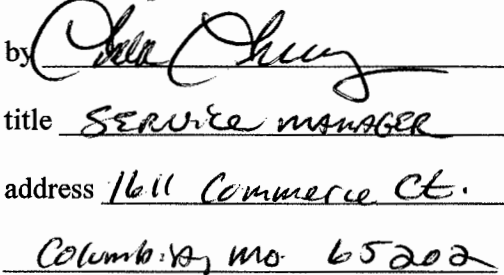 by
title SERVICE MANAGER
address 1611 Commerce Ct.
Columbia, Mo. 65202